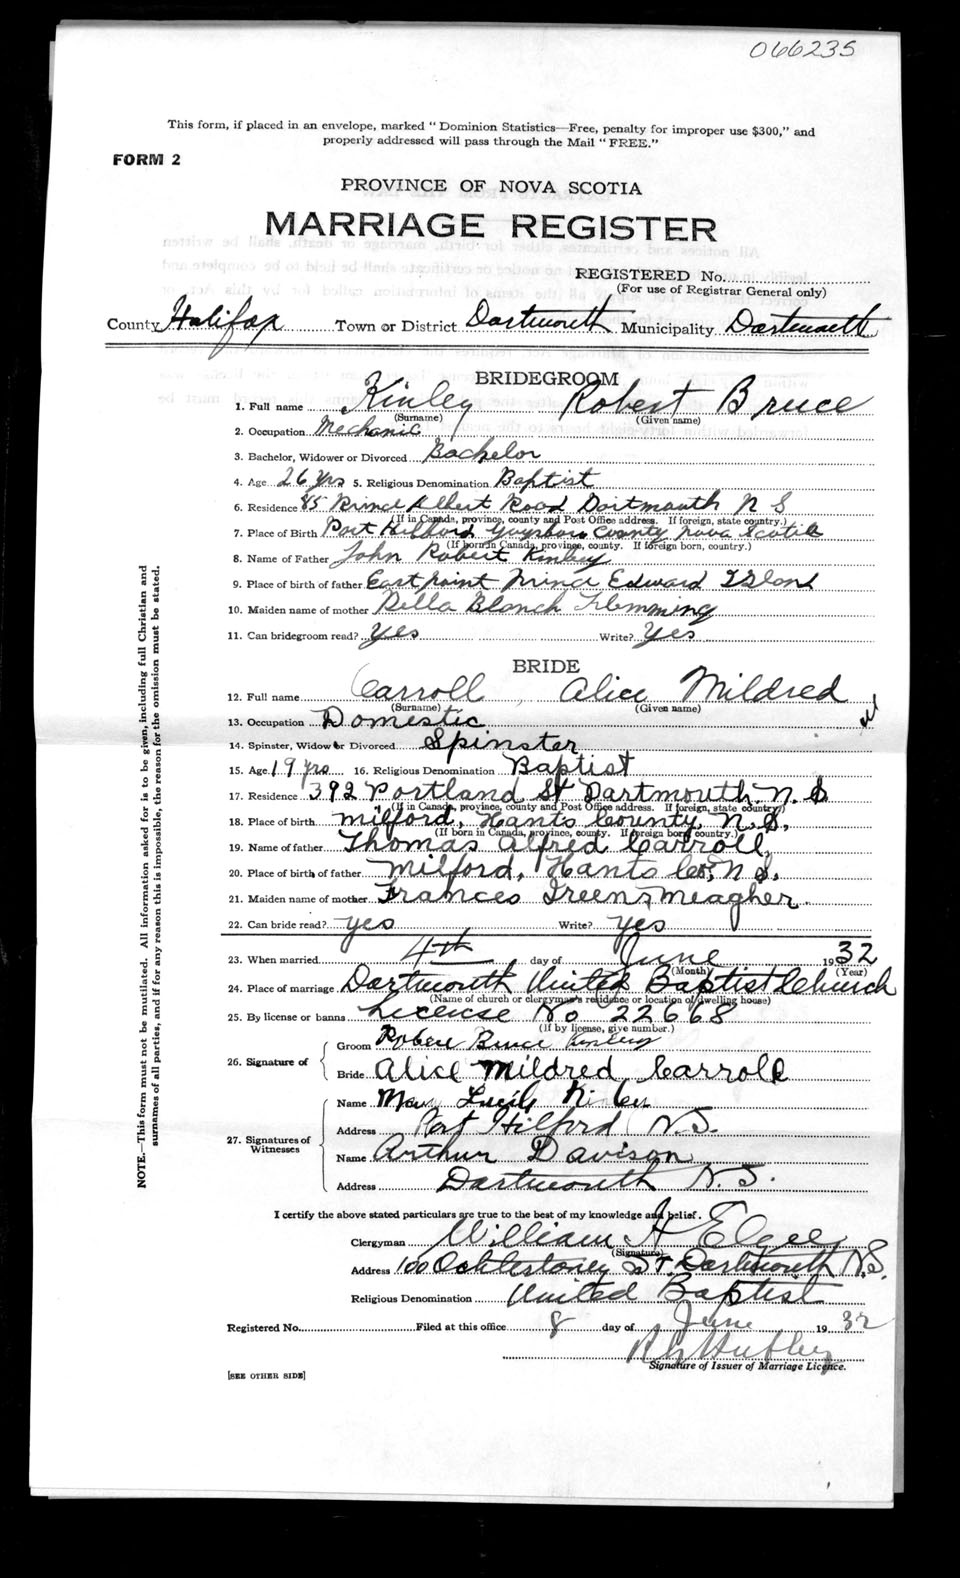 066235
This form, if placed in an envelope, marked "Dominion Statistics—Free, penalty for improper use $300," and
properly addressed will pass through the Mail "FREE."
FORM 2
PROVINCE OF NOVA SCOTIA
MARRIAGE REGISTER
REGISTERED No.
(For use of Registrar General only)
County Halifax Town or District Dartmouth Municipality Dartmouth
BRIDEGROOM
1. Full name Kinley Robert Bruce
(Surname) (Given name)
2. Occupation Mechanic
3. Bachelor, Widower or Divorced Bachelor
4. Age 26 yrs 5. Religious Denomination Baptist
6. Residence 85 Prince Albert Road Dartmouth N S
(If in Canada, province, county and Post Office address. If foreign, state country.)
7. Place of Birth Port Hilford Guysboro County Nova Scotia
(If born in Canada, province, county. If foreign born, country.)
8. Name of Father John Robert Kinley
9. Place of birth of father East Point Prince Edward Island
10. Maiden name of mother Della Blanch Flemming
11. Can bridegroom read? Yes Write? Yes
BRIDE
12. Full name Carroll, Alice Mildred
(Surname) (Given name)
13. Occupation Domestic
14. Spinster, Widow or Divorced Spinster
15. Age 19 yrs 16. Religious Denomination Baptist
17. Residence 392 Portland St Dartmouth N. S
(If in Canada, province, county and Post Office address. If foreign, state country.)
18. Place of birth Milford, Hants County, N.S.
(If born in Canada, province, county. If foreign born country.)
19. Name of father Thomas Alfred Carroll,
20. Place of birth of father Milford, Hants Co, N S.
21. Maiden name of mother Frances Meagher
22. Can bride read? yes Write? yes
23. When married 4th day of June 1932
(Month) (Year)
24. Place of marriage Dartmouth United Baptist Church
(Name of church or clergyman's residence or location of dwelling house)
25. By license or banns License No 22668
(If by license, give number.)
26. Signature of
Groom Robert Bruce Kinley
Bride Alice Mildred Carroll
27. Signatures of Witnesses
Name Mary Lucile Kinley
Address Port Hilford N.S.
Name Arthur Davison
Address Dartmouth N.S.
I certify the above stated particulars are true to the best of my knowledge and belief.
Clergyman William A Elgee
(Signature)
Address 100 St. Dartmouth N.S.
Religious Denomination United Baptist
Registered No. Filed at this office 8 day of June 1932
Signature of Issuer of Marriage Licence.
[SEE OTHER SIDE]
NOTE.—This form must not be mutilated. All information asked for is to be given, including full Christian and
surnames of all parties, and if for any reason this is impossible, the reason for the omission must be stated.